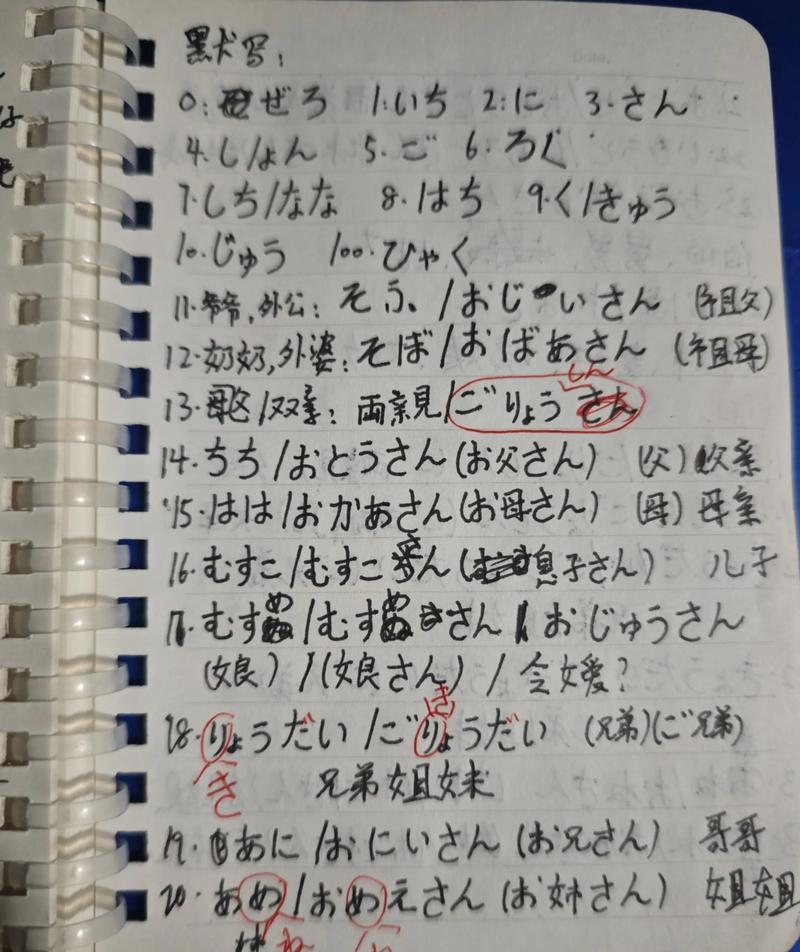 默写:
0:ぜろ 1:いち 2:に 3.さん
4.し/よん 5.ご 6.ろく
7.しち/なな 8.はち 9.く/きゅう
10.じゅう 100.ひゃく
11.爷爷,外公:そふ/おじいさん (祖父)
12.奶奶,外婆:そぼ/おばあさん (祖母)
しん
13. /双亲:両親見/ごりょうさん
14.ちち/おとうさん(お父さん) (父)父亲
15.はは/おかあさん(お母さん) (母) 母亲
16.むすこ/むすこさん(息子さん) 儿子
17.むすめ/むすめさん おじゅうさん
(娘)/(娘さん)/令嫒?
き
18.りょうだい/ごりょうだい (兄弟)(ご兄弟)
き 兄弟姐妹
19.あに/おにいさん(お兄さん) 哥哥
20.あめ/おめえさん(お姉さん) 姐姐
ね